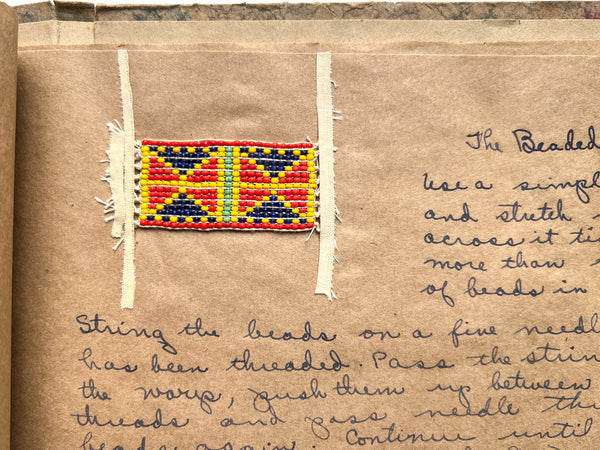 The Beaded
Use a simpl
and stretch
across it ti
more than
of beads in
String the beads on a fine needl
has been threaded. Pass the strin
the warp, push them up between
threads and pass needle th
beads again. Continue until